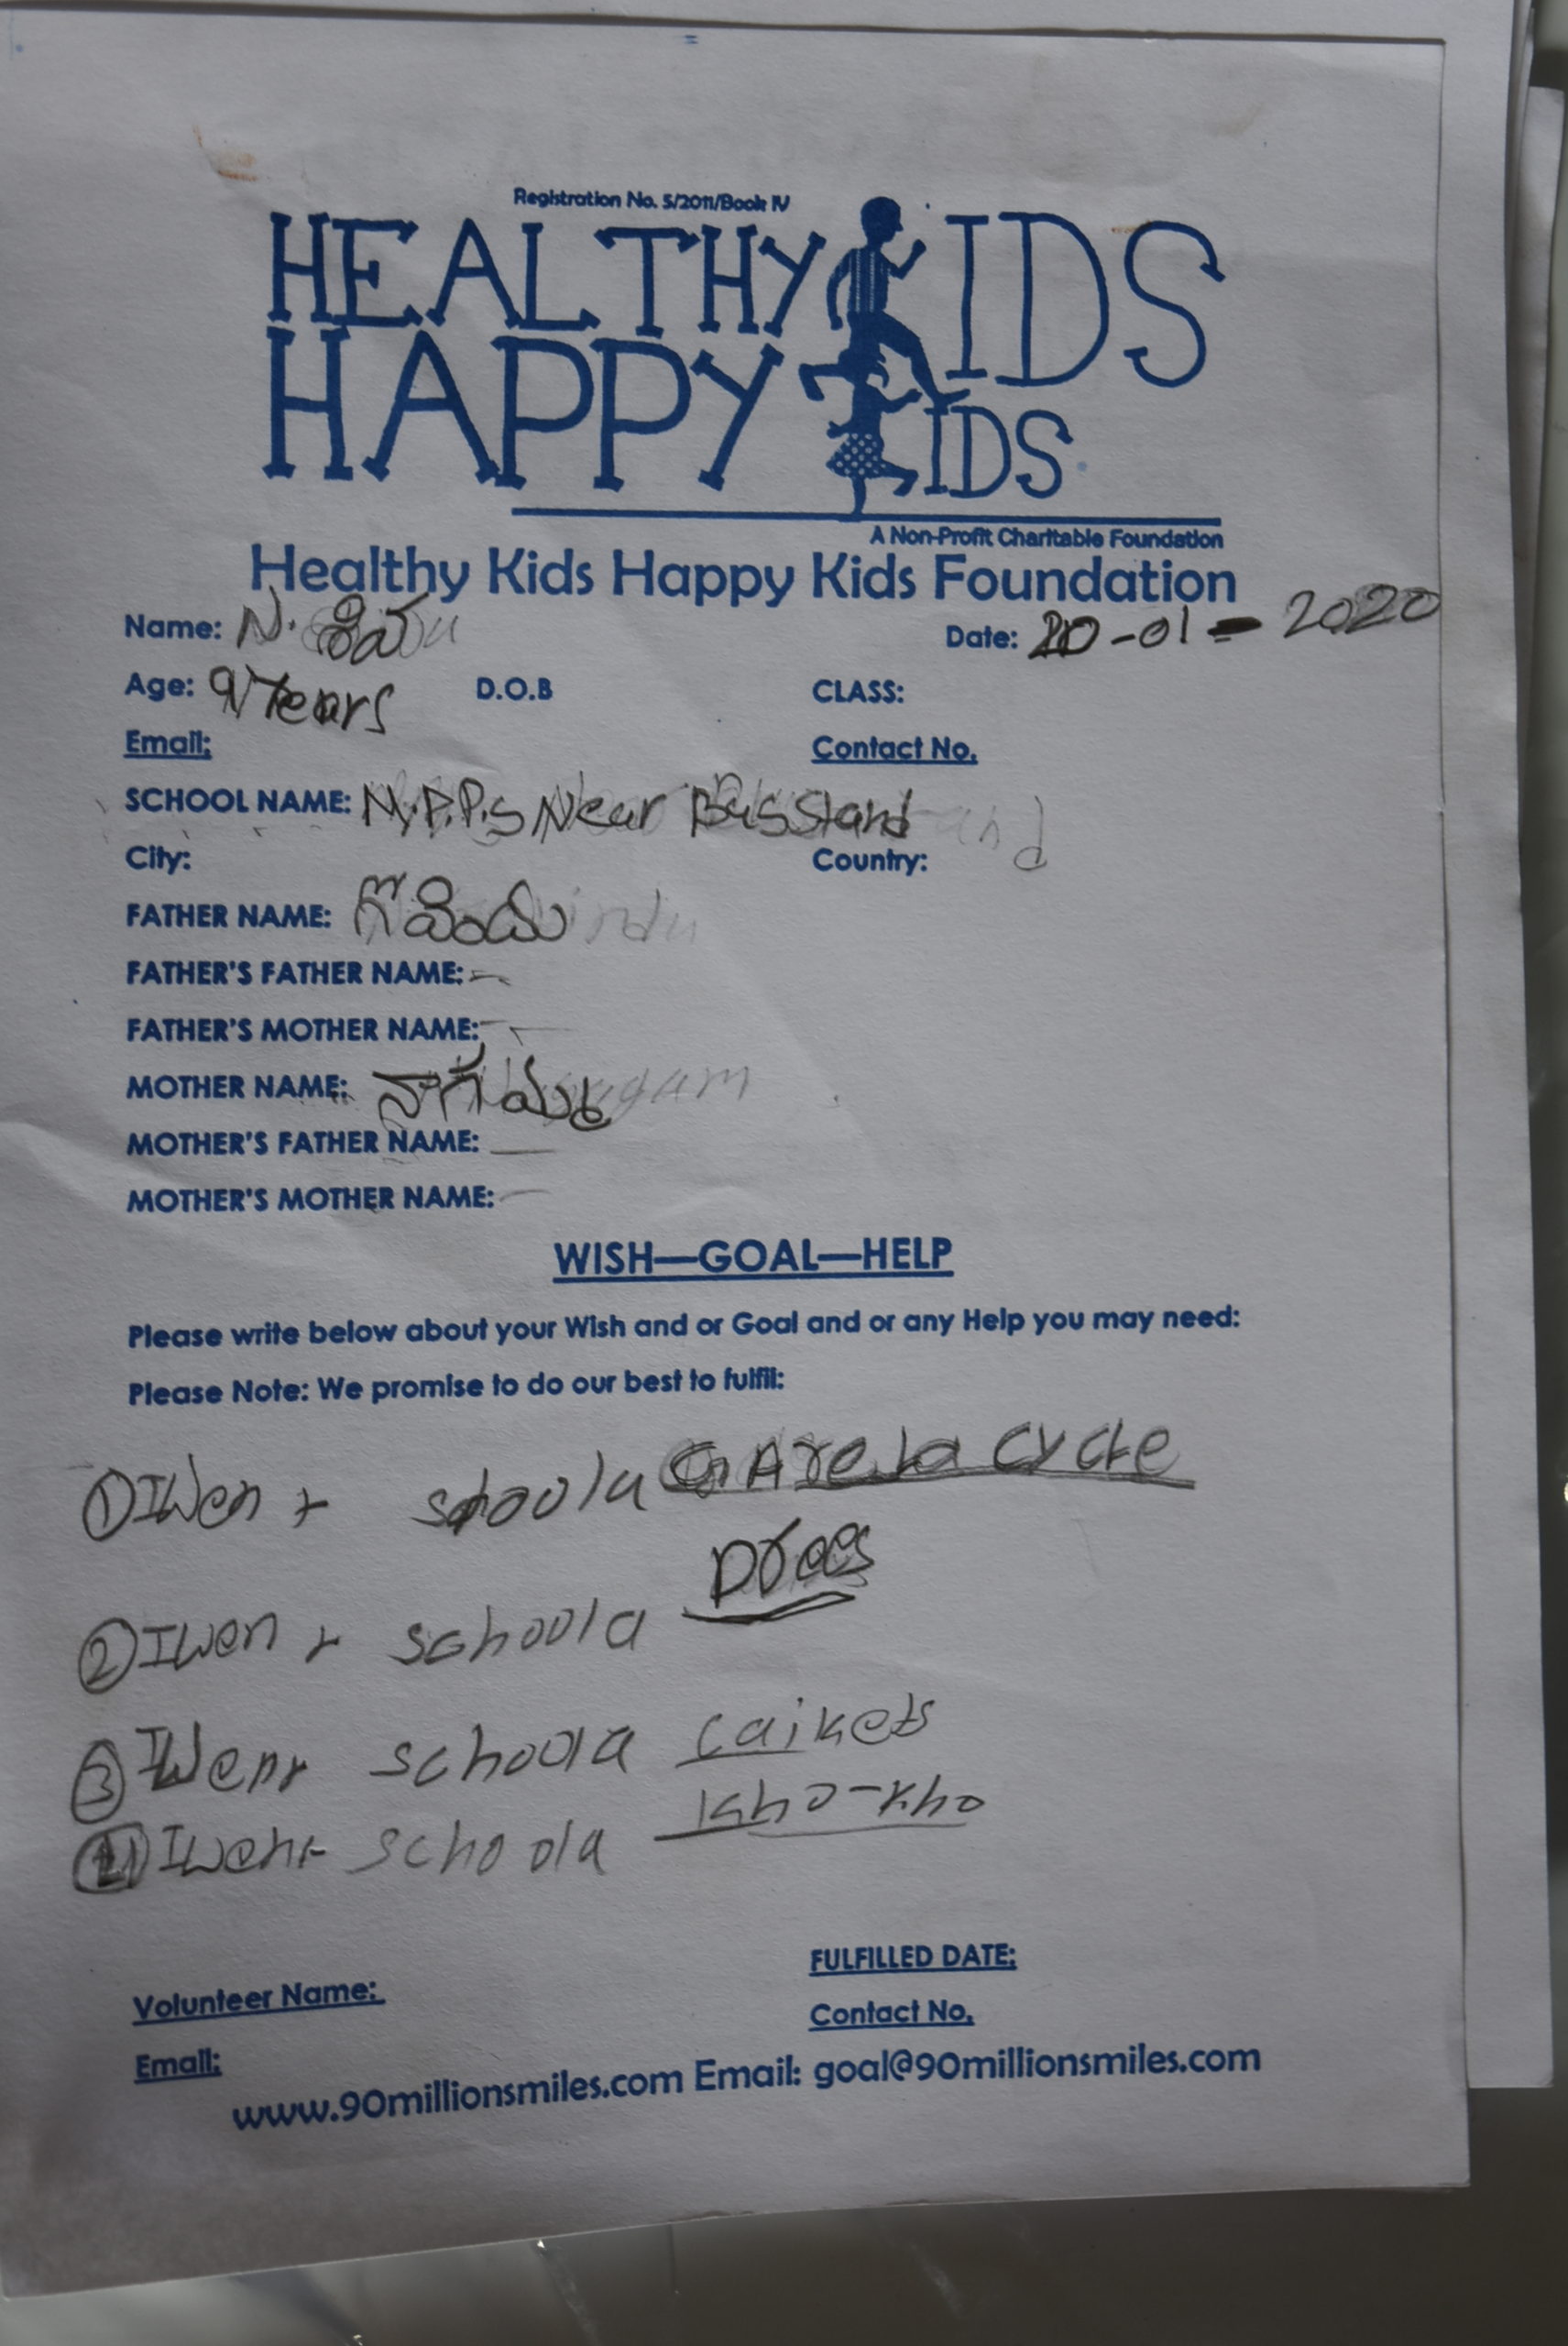 Registration No. 5/2011/Book IV
HEALTHY KIDS
HAPPY KIDS
A Non-Profit Charitable Foundation
Healthy Kids Happy Kids Foundation
Name: N. శివ Date: 20-01-2020
Age: 9 Years D.O.B CLASS:
Email: Contact No.
SCHOOL NAME: M.P.P.S Near Bus Stand
City: Country:
FATHER NAME: గోవిందు
FATHER'S FATHER NAME: -
FATHER'S MOTHER NAME: -
MOTHER NAME: నాగమ్మ
MOTHER'S FATHER NAME: -
MOTHER'S MOTHER NAME: -
WISH—GOAL—HELP
Please write below about your Wish and or Goal and or any Help you may need:
Please Note: We promise to do our best to fulfil:
① I wen t schoola cycle
② I wen t schoola Drees
③ I went schoola caikets
④ I went schoola kho-kho
FULFILLED DATE:
Volunteer Name:
Contact No.
Email:
www.90millionsmiles.com Email: goal@90millionsmiles.com